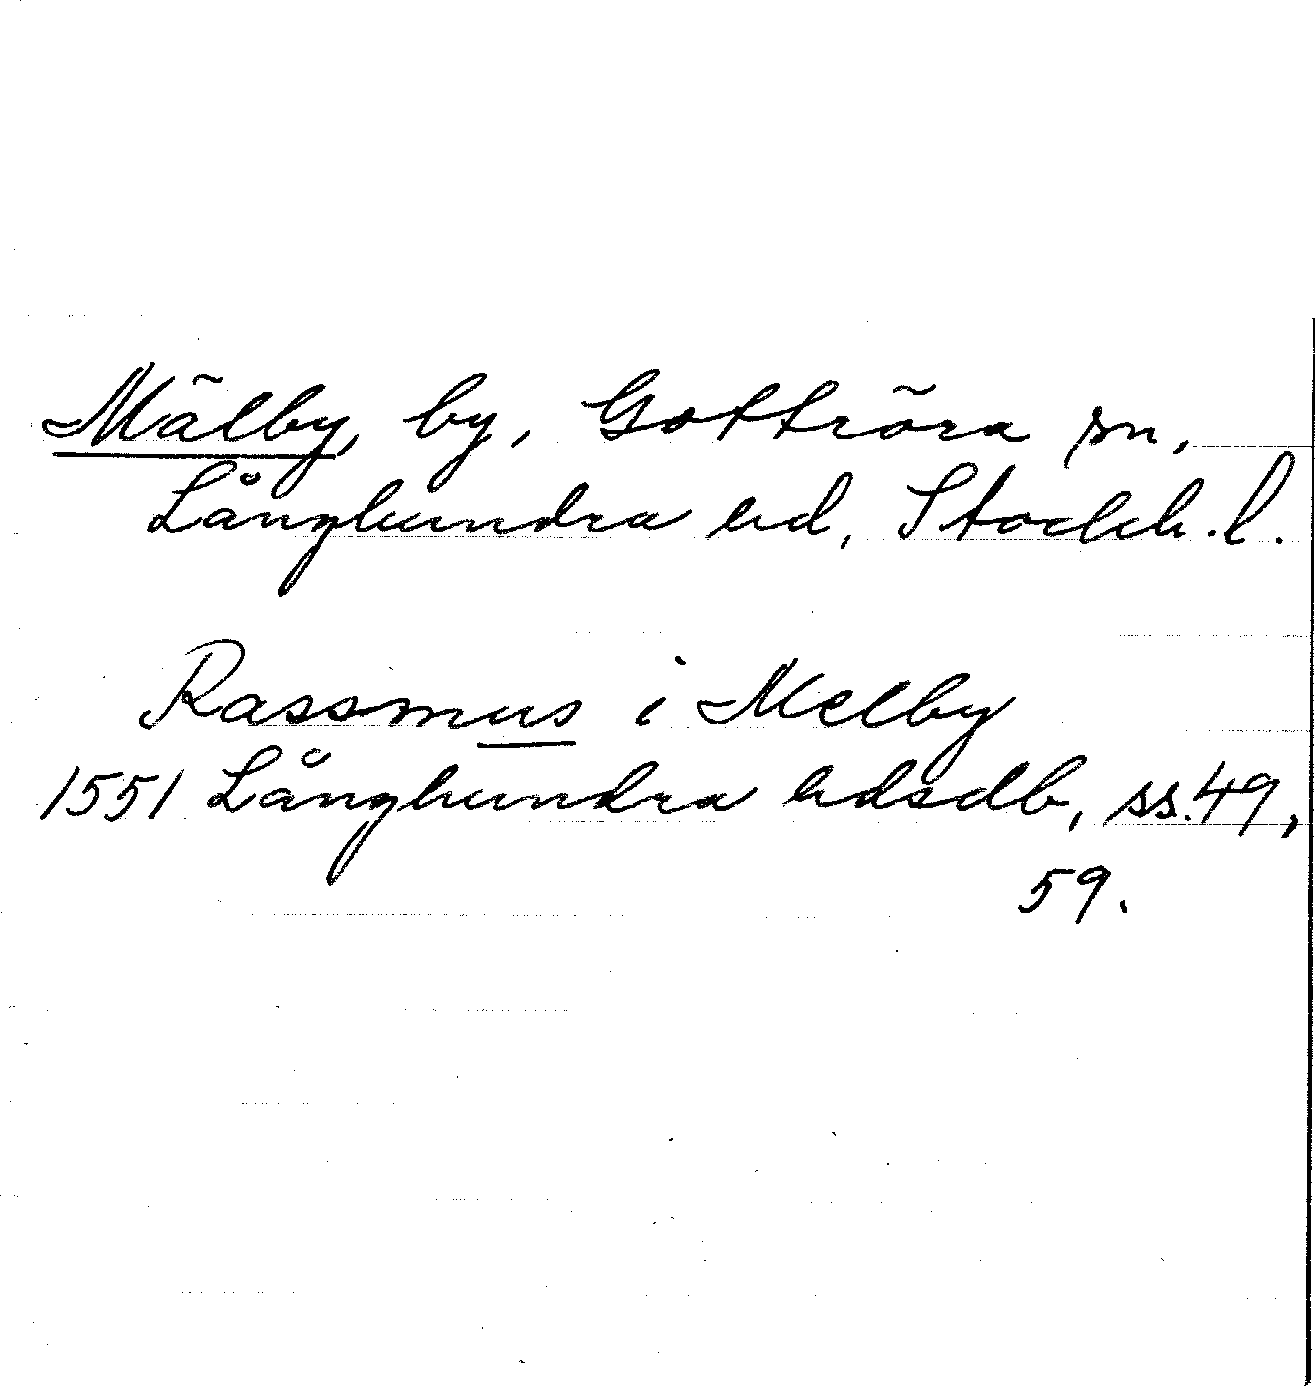 Mälby, by, Gottröra sn,
Långhundra hd, Stockh. l.
Rassmus i Melby
1551 Långhundra hdsdb, ss. 49,
59.